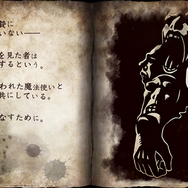 贄に
いない――
を見た者は
するという。
われた魔法使いと
共にしている。
なすために。